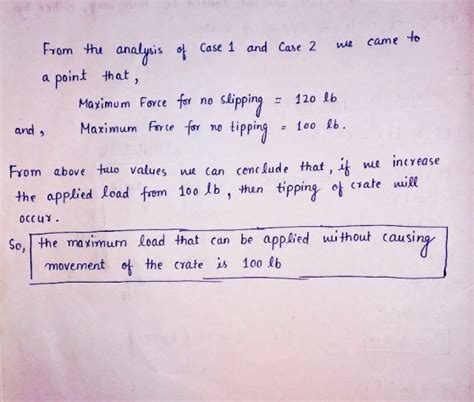 From the analysis of Case 1 and Case 2 we came to
a point that,
Maximum Force for no slipping = 120 lb
and, Maximum Force for no tipping = 100 lb.
From above two values we can conclude that, if we increase
the applied load from 100 lb, then tipping of crate will
occur.
So, the maximum load that can be applied without causing
movement of the crate is 100 lb